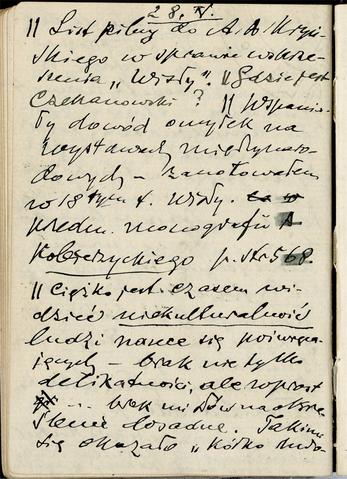 28. IV.
|| List pilny do A. A. Kryń-
skiego w sprawie wskrze-
szenia „Wisły". || Gdzie jest
Czekanowski? || Wspania-
ły dowód omyłek na
wystawach międzynaro-
dowych – zanotowałem
w 18 tym t. Wisły.
przedm. monografii A
Kobierzyckiego p. str. 568.
|| Ciężko jest czasem wi-
dzieć niekulturalność
ludzi nauce się poświęca-
jących – brak nie tylko
delikatności, ale wprost
... brak mi słów na okre-
ślenie dosadne. Takim
się okazało „Kółko